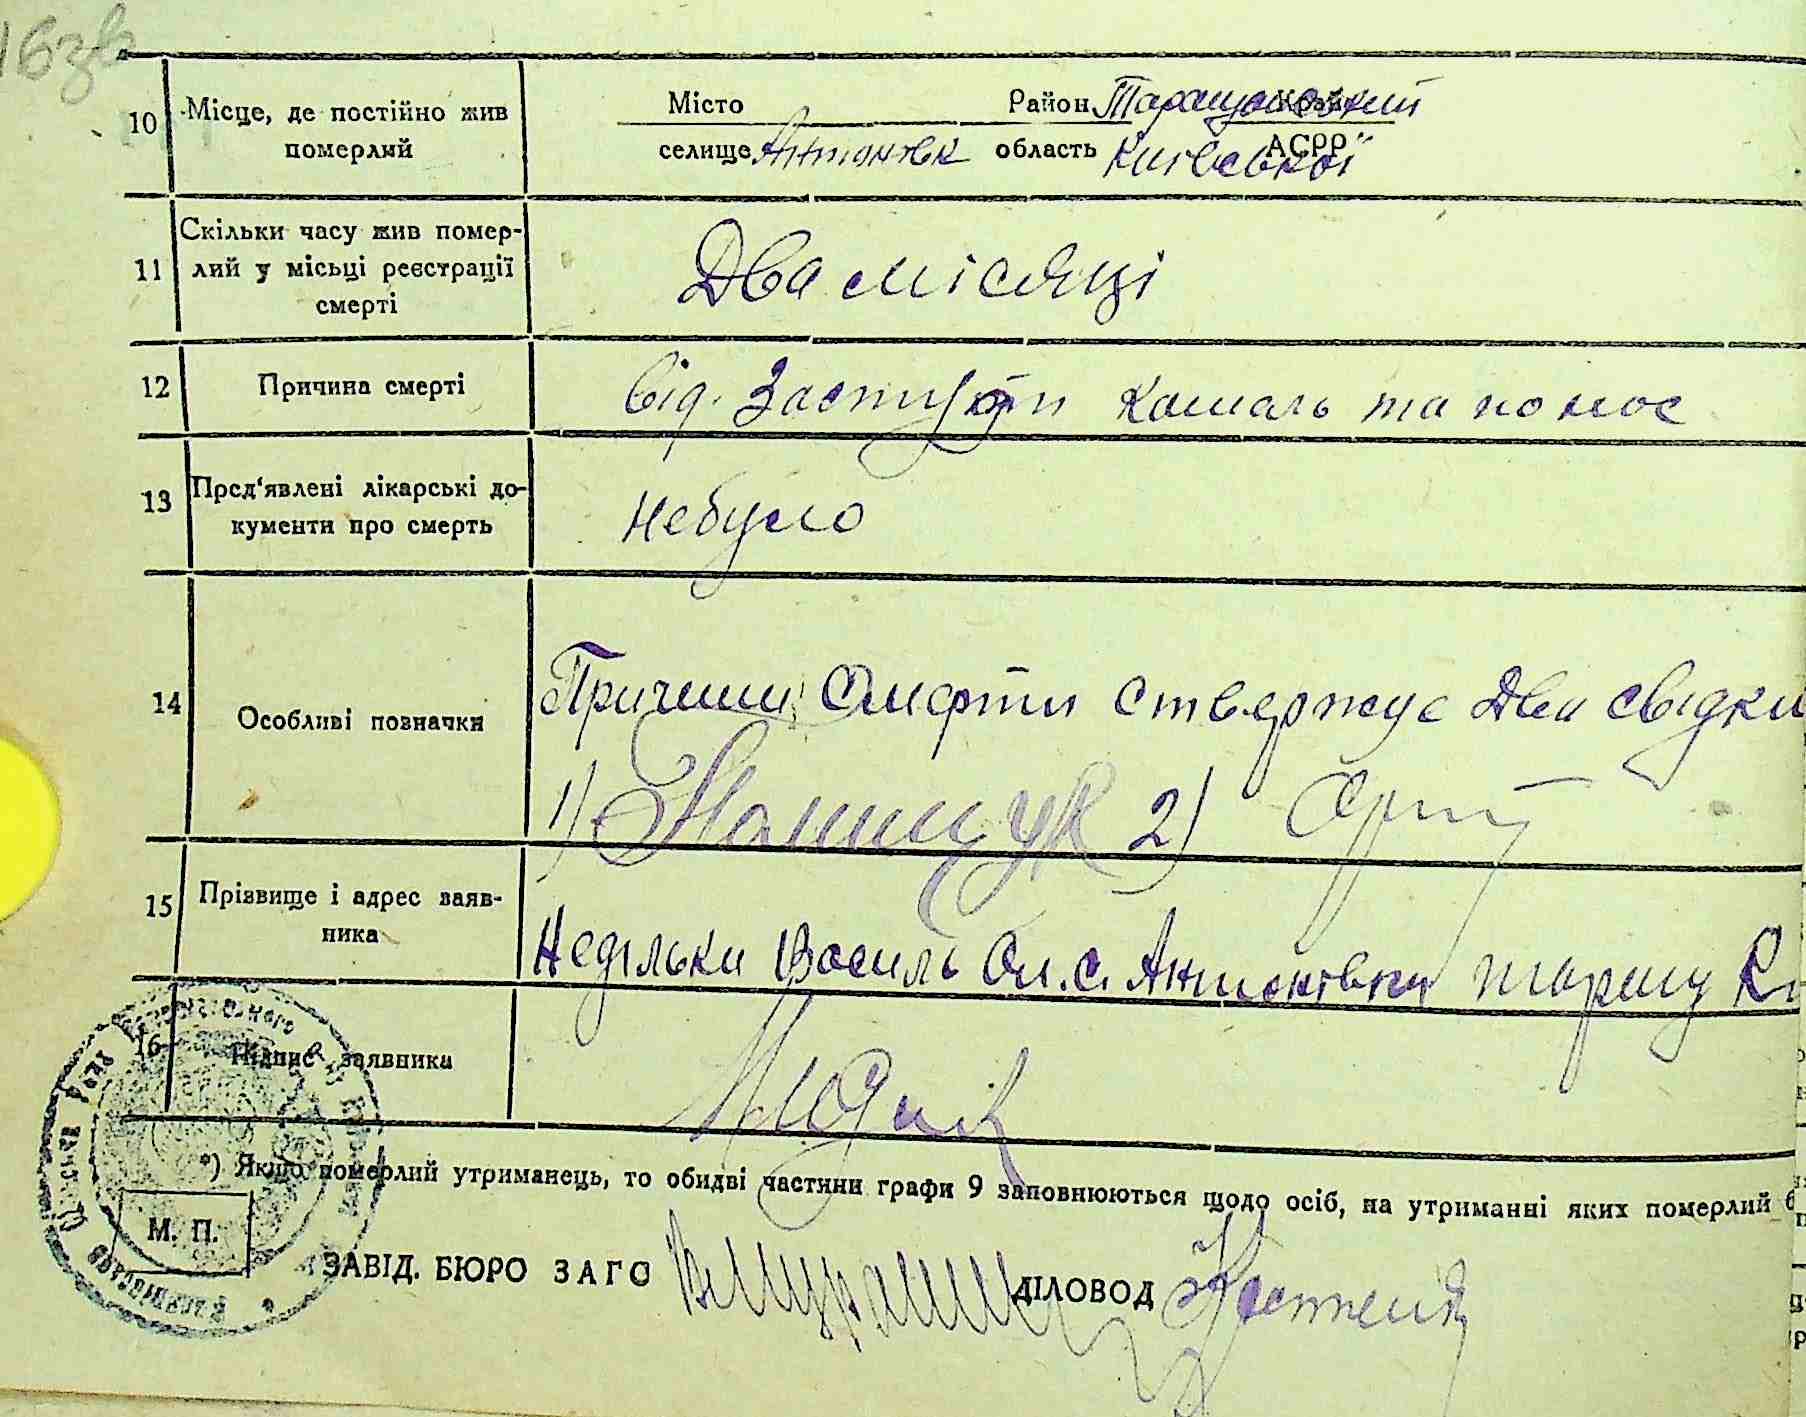 16зв
10 Місце, де постійно жив Місто Район Таращанський
померлий селище Антонівк область Київської АСРР
Скільки часу жив помер-
11 лий у місьці реєстрації Два місяці
смерті
12 Причина смерті від. Застуди кашаль та понос
13 Пред‘явлені лікарські до-
кументи про смерть Небуло
14 Особливі позначки Причини Смерти ствержує Два свідки
1) 2)
15 Прізвище і адрес заяв-
ника Недільки Василь Ол. с. Антонівка таращ К
16 Підпис заявника
*) Якщо померлий утриманець, то обидві частини графи 9 заповнюються щодо осіб, на утриманні яких померлий б
М. П.
ЗАВІД. БЮРО ЗАГС ДІЛОВОД